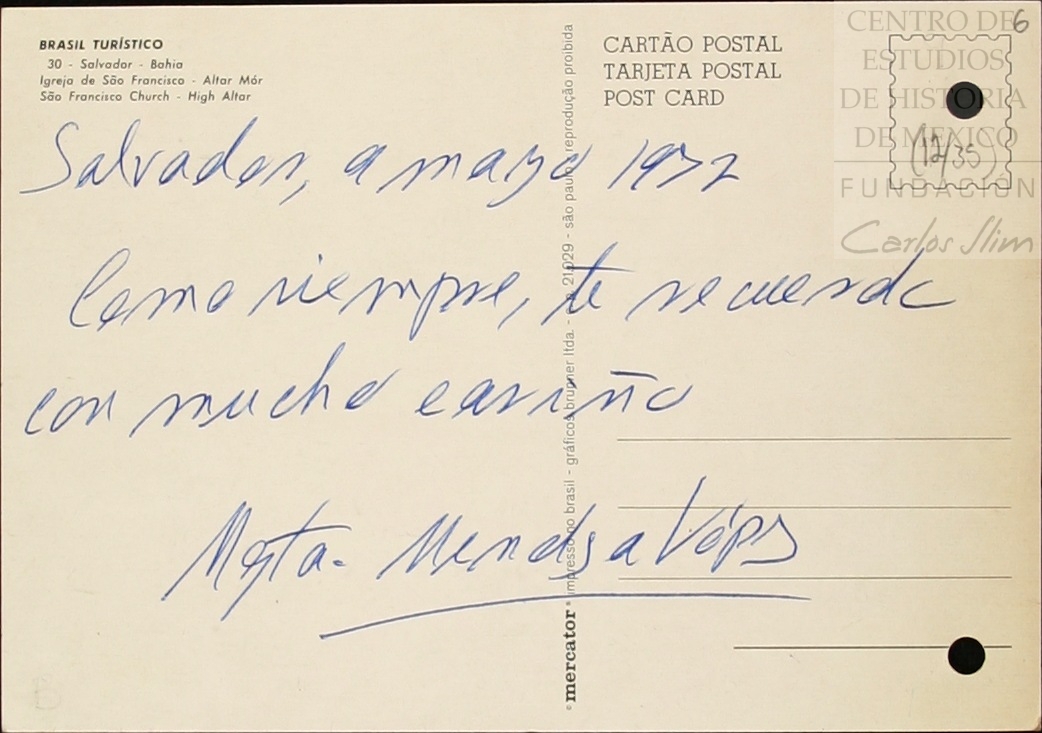 BRASIL TURÍSTICO
30 - Salvador - Bahia
Igreja de São Francisco - Altar Mór
São Francisco Church - High Altar
CARTÃO POSTAL
TARJETA POSTAL
POST CARD
CENTRO DE
ESTUDIOS
DE HISTORIA
DE MEXICO
FUNDACIÓN
Carlos Slim
6
(12/35)
Salvador, a mayo 1972
Como siempre, te recuerda
con mucho cariño
Mgta. Mendoza López
© mercator ® impresso no brasil - gráficos brunner ltda. - 21029 - são paulo - reprodução proibida
B